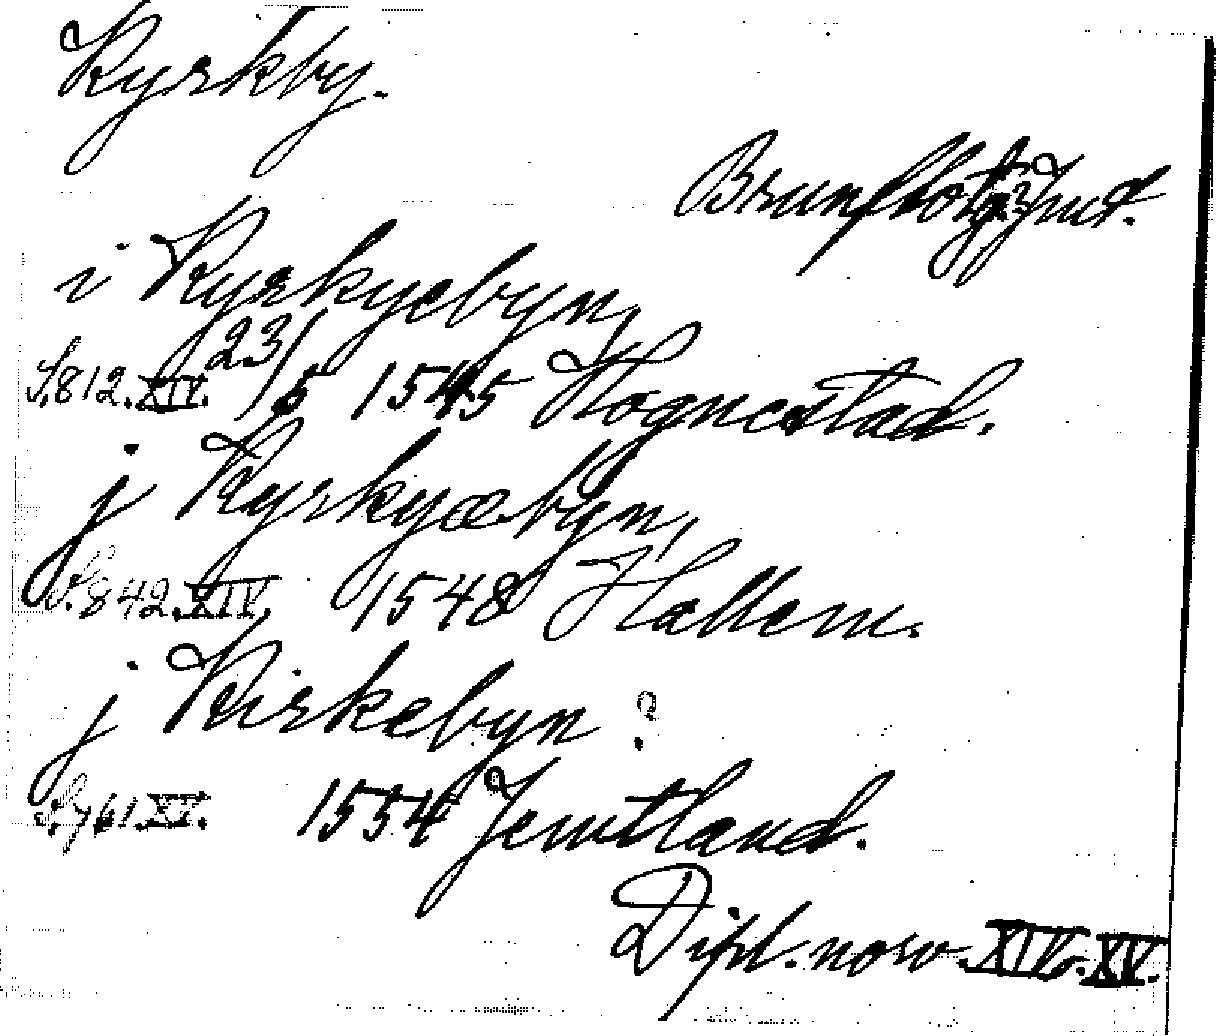 Kyrkby.
Brunflo tg. Jmt.
i Kyrkyebyn,
S. 812. XIV. 23/5 1545 Hognestad.
j Kyrkyæbyn,
S. 842. XIV. 1548 Hallem.
j Kirkebyn ?
S. 761. XV. 1554 Jemtland.
Dipl. norv. XIV. XV.